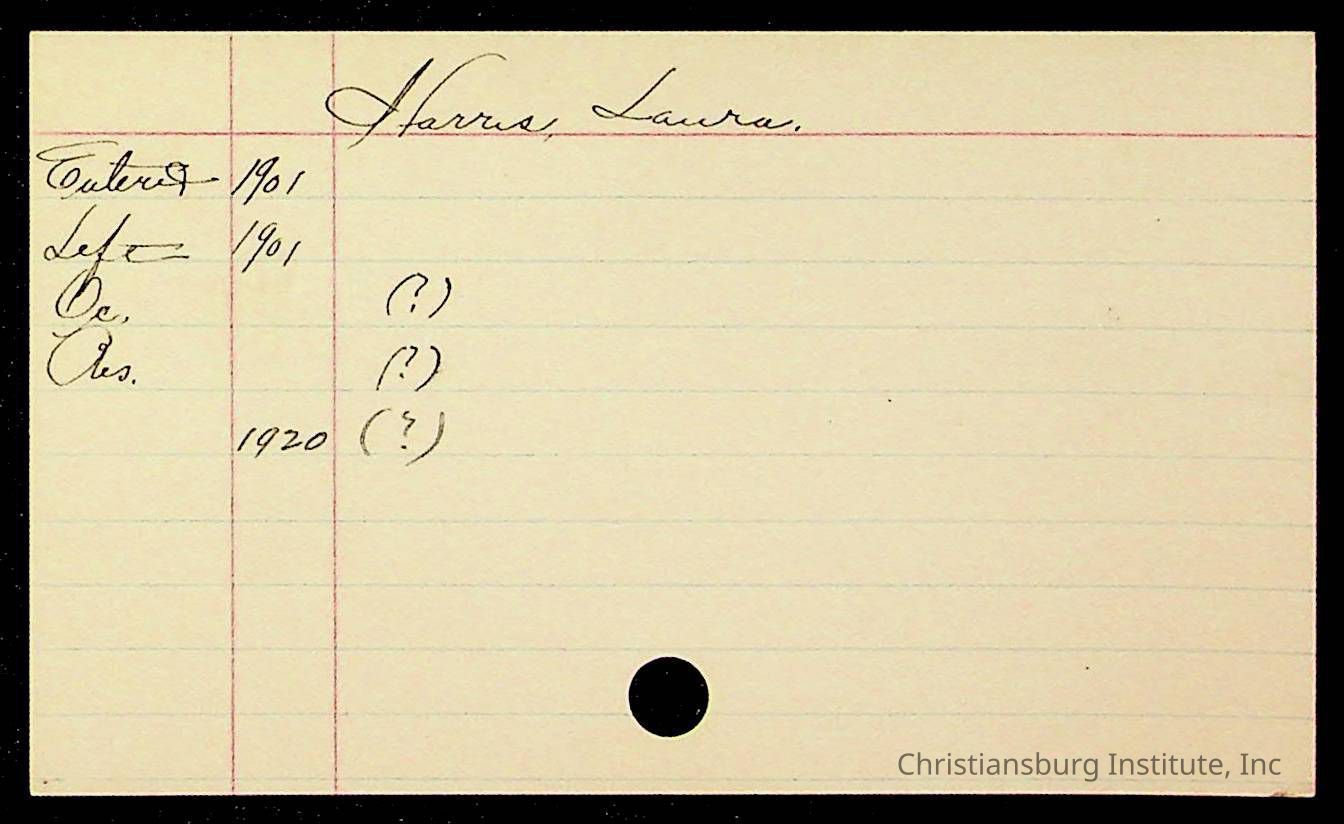 Harris, Laura.
Entered 1901
Left 1901
Oc. (?)
Res. (?)
1920 (?)
Christiansburg Institute, Inc